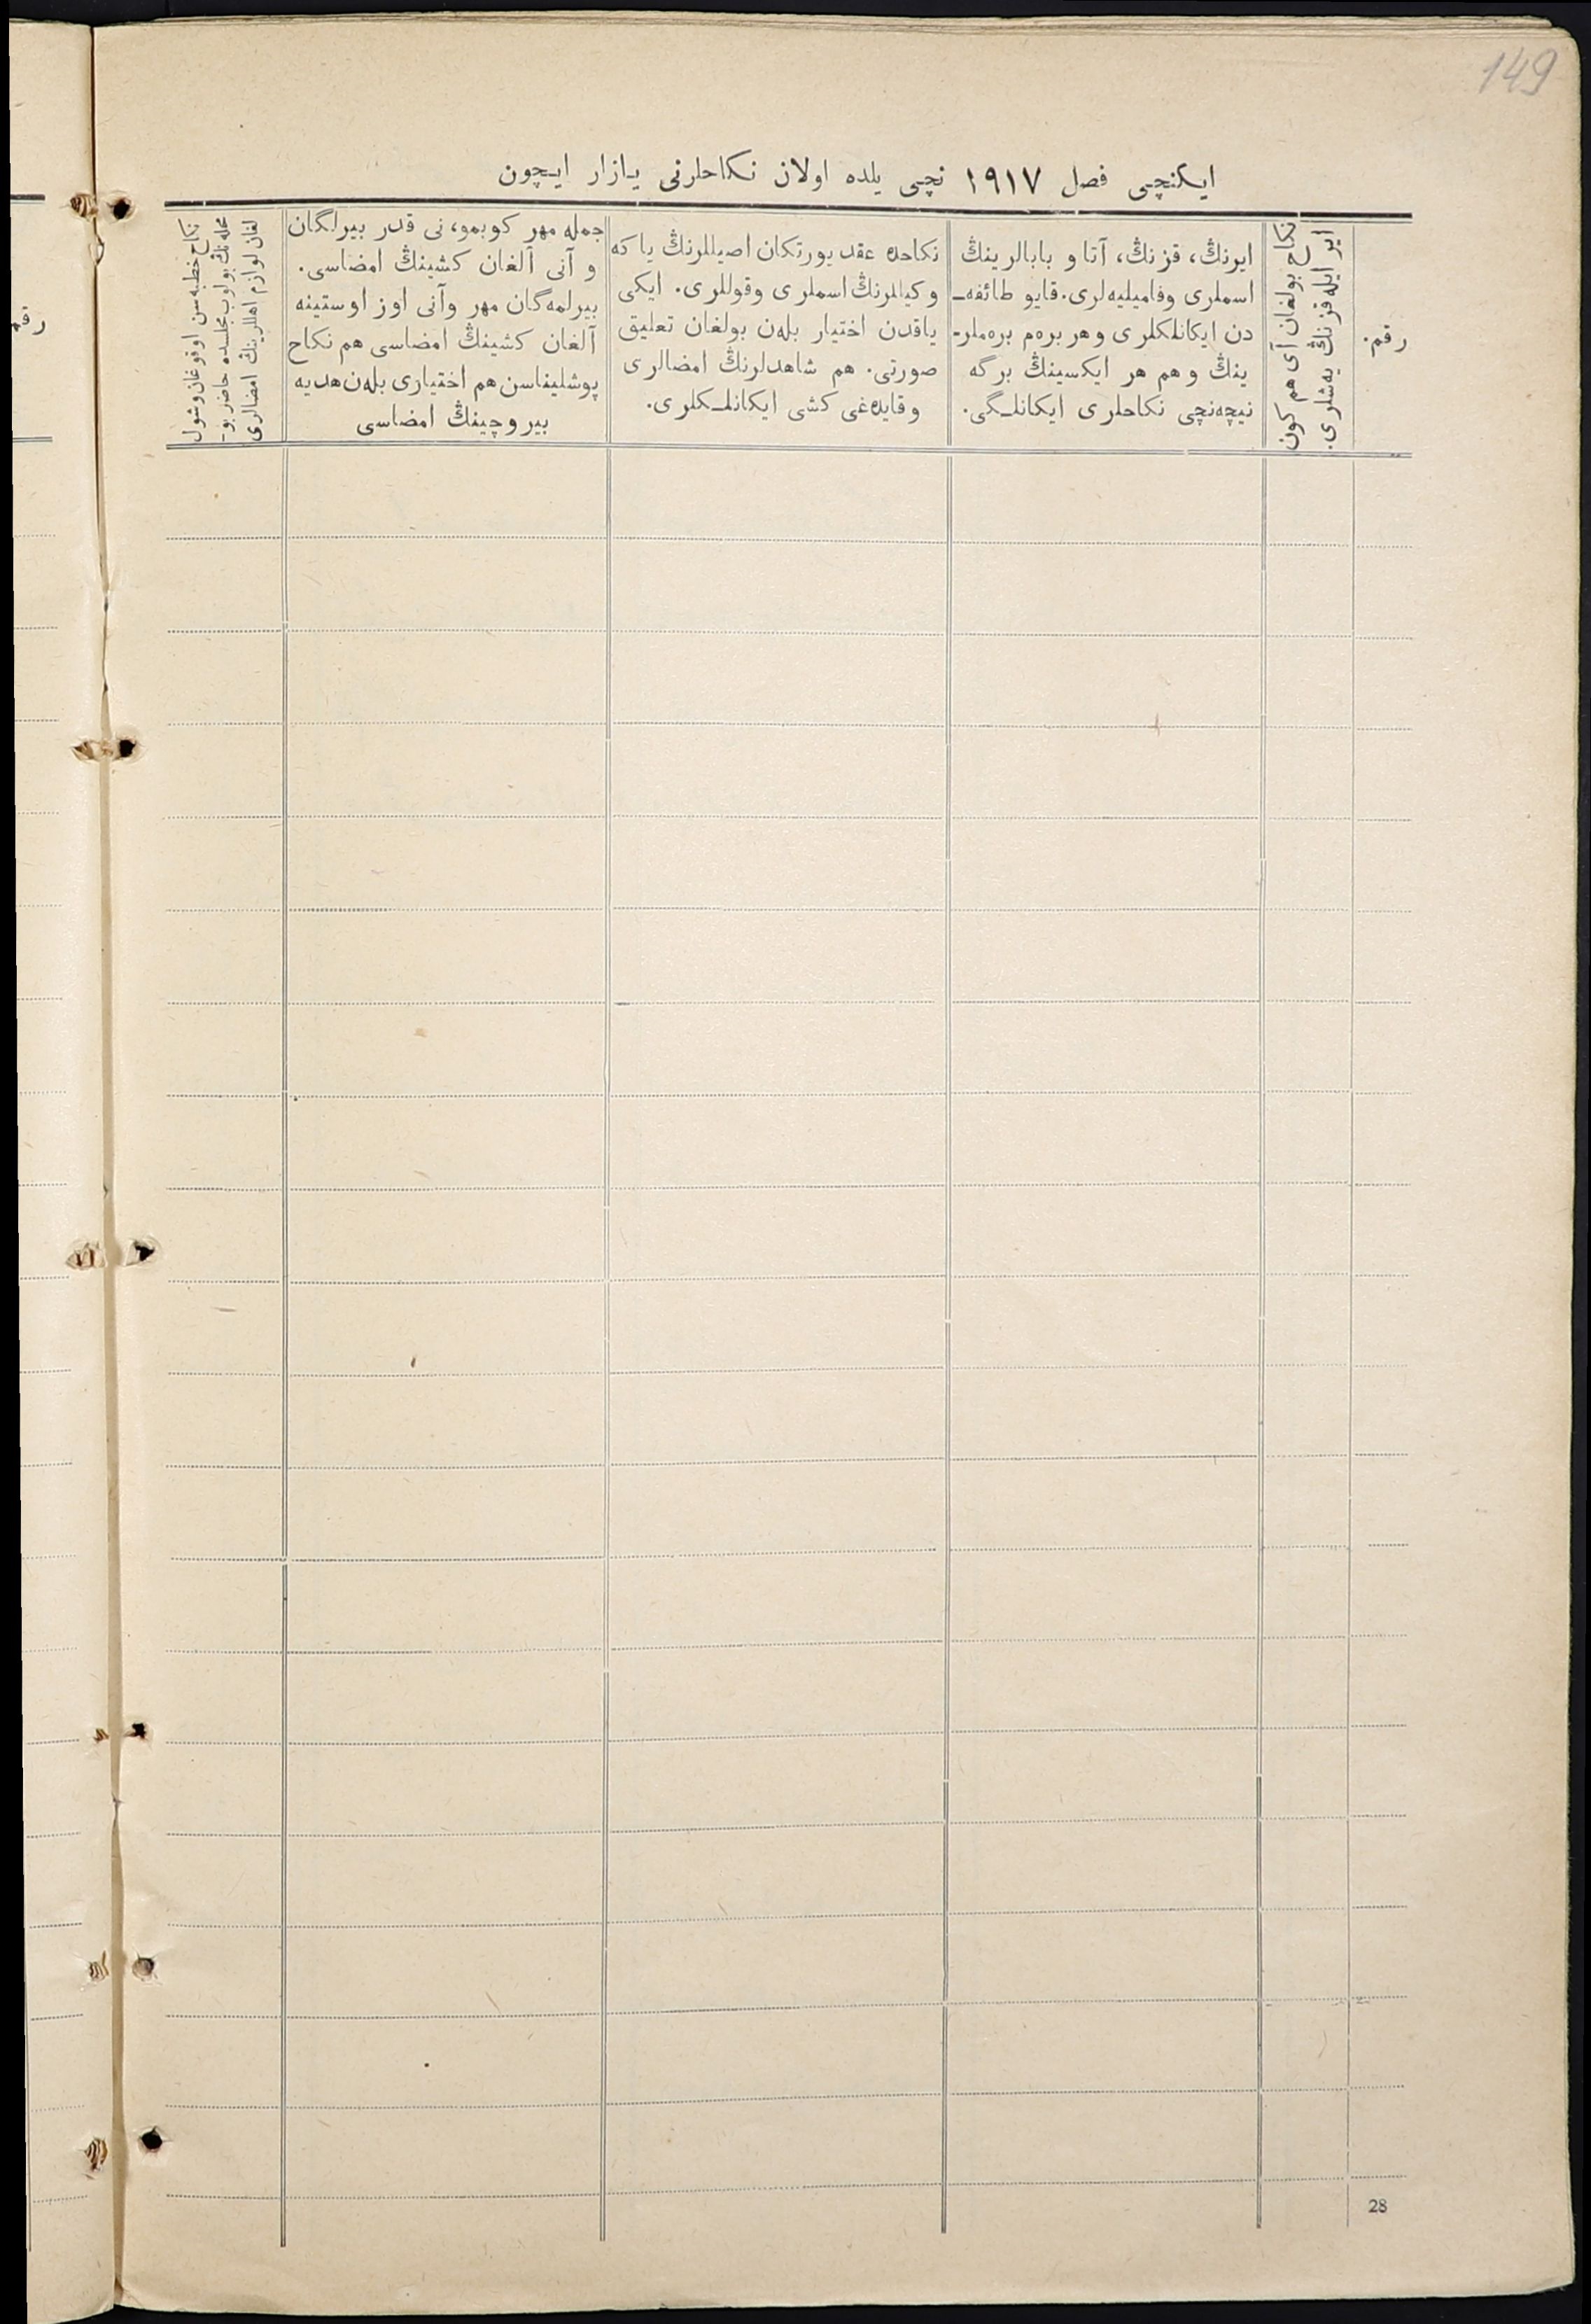 149
ایکنچی فصل ١٩١٧ نچی یلده اولان نکاحلرنی یازار ایچون
رقم.
نکاح بولغان آی هم کون
ایر ایله قزنڭ یەشلری.
ایرنڭ، قزنڭ، آتا و بابالرینڭ
اسملری وفامیلیەلری. قایو طائفه‌ـ
دن ایکانلکلری وهر برەم برەملر-
ینڭ وهم هر ایکسینڭ برگه
نیچەنچی نکاحلری ایکانلـگی.
نکاحده عقد یورتکان اصیللرنڭ یا که
وکیللرنڭ اسملری وقوللری. ایکی
یاقدن اختیار بلەن بولغان تعلیق
صورتی. هم شاهدلرنڭ امضالری
وقایدەغی کشی ایکانلـکلری.
جمله مهر کوبمو، نی قدر بیرلگان
و آنی آلغان کشینڭ امضاسی.
بیرلمەگان مهر وآنی اوز اوستینه
آلغان کشینڭ امضاسی هم نکاح
پوشلیناسن هم اختیاری بلەن هدیه
بیروچینڭ امضاسی
نکاح خطبه‌سن اوقوغان وشول
محلەنڭ بولوب مجلسده حاضر بو-
لغان لوازم اهللرینڭ امضالری
رقم
28